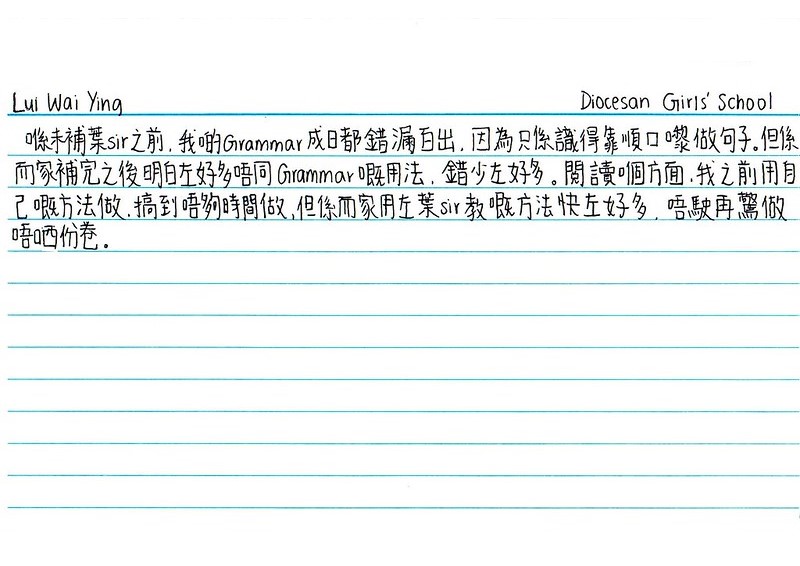 Lui Wai Ying Diocesan Girls' School
喺未補葉sir之前，我啲Grammar成日都錯漏百出，因為只係識得靠順口嚟做句子。但係
而家補完之後明白左好多唔同Grammar嘅用法，錯少左好多。閱讀嗰個方面，我之前用自
己嘅方法做，搞到唔夠時間做，但係而家用左葉sir教嘅方法快左好多，唔駛再驚做
唔哂份卷。